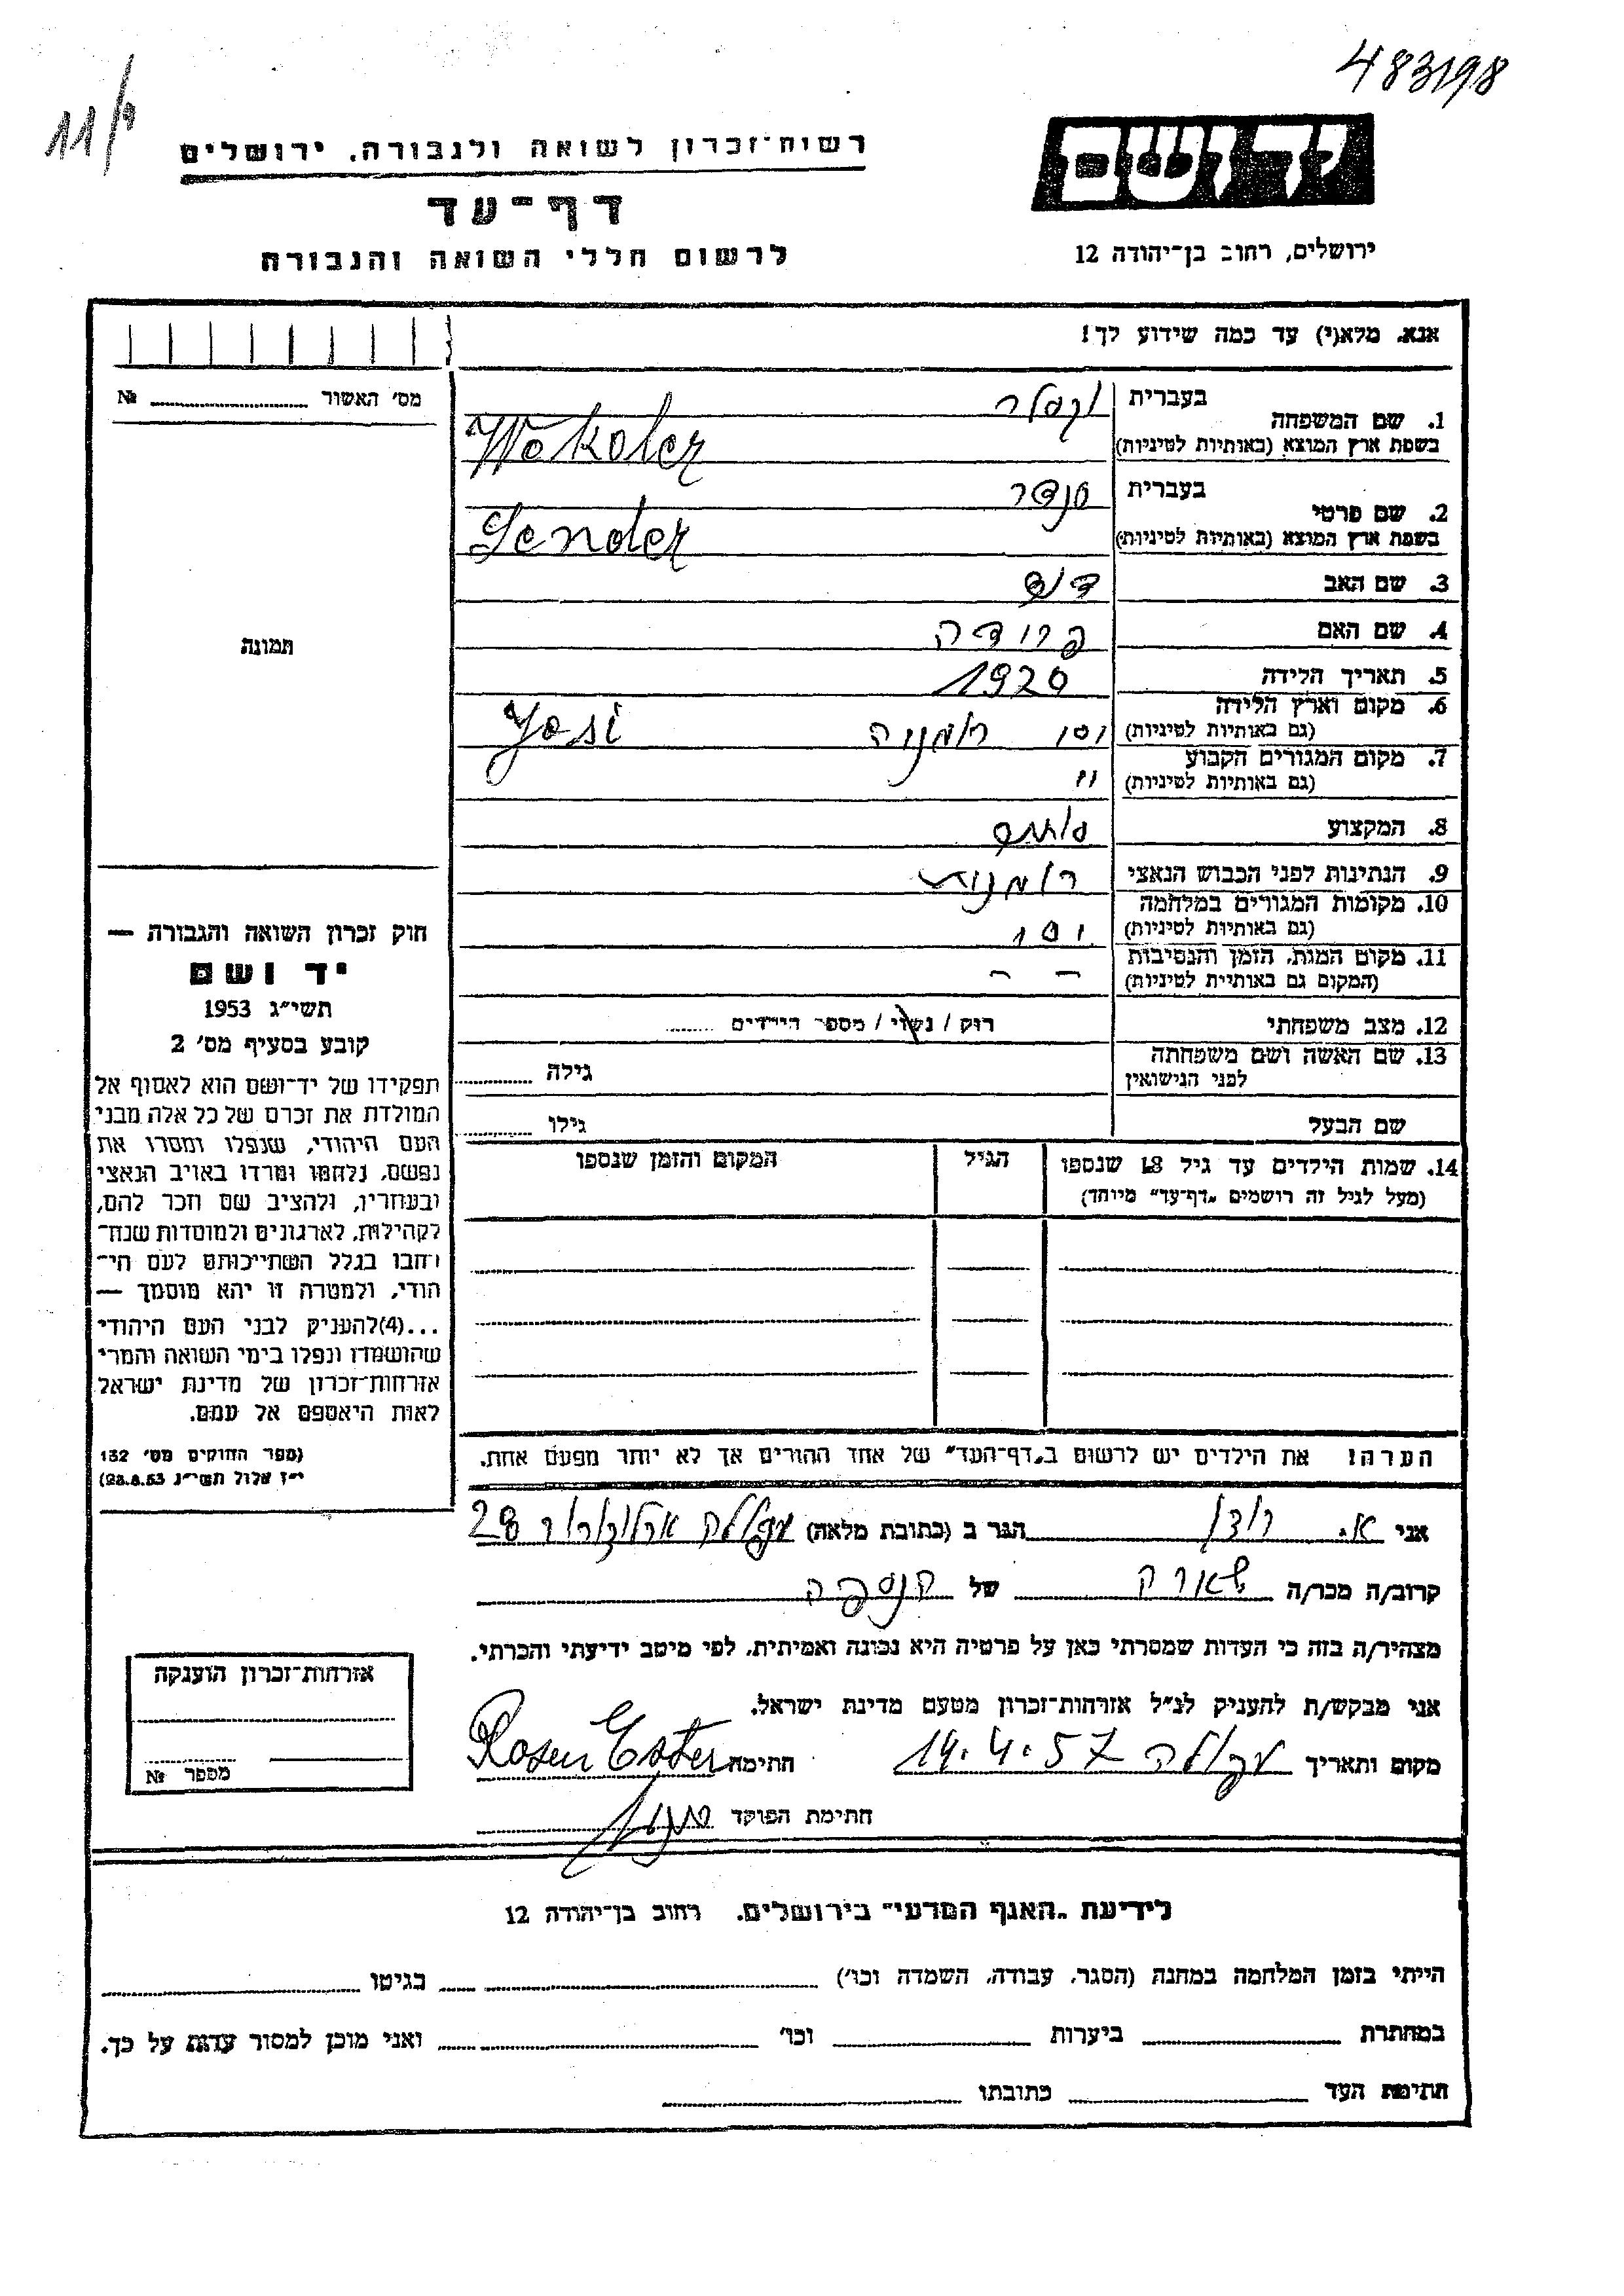 483198
11/
רשות־זכרון לשואה ולגבורה, ירושלים
יד ושם
דף־עד
ירושלים, רחוב בן־יהודה 12
לרשום חללי השואה והגבורה
אנא, מלא(י) עד כמה שידוע לך!
מס' האשור № ........
1. שם המשפחה
בעברית
בשפת ארץ המוצא (באותיות לטיניות) Wekoler
2. שם פרטי
בעברית סנדר
בשפת ארץ המוצא (באותיות לטיניות) Sender
3. שם האב
4. שם האם פרידה
5. תאריך הלידה 1920
6. מקום וארץ הלידה
(גם באותיות לטיניות) יסי רומניה Yosi
7. מקום המגורים הקבוע
(גם באותיות לטיניות) "
8. המקצוע
9. הנתינות לפני הכבוש הנאצי רומנית
10. מקומות המגורים במלחמה
(גם באותיות לטיניות) יסי
11. מקום המות, הזמן והנסיבות
(המקום גם באותיות לטיניות) - -
12. מצב משפחתי רוק / נשוי / מספר הילדים ........
13. שם האשה ושם משפחתה
לפני הנישואין גילה ........
שם הבעל גילו ........
14. שמות הילדים עד גיל 18 שנספו
(מעל לגיל זה רושמים "דף־עד" מיוחד)
הגיל
המקום והזמן שנספו
הערה! את הילדים יש לרשום ב"דף־העד" של אחד ההורים אך לא יותר מפעם אחת.
תמונה
חוק זכרון השואה והגבורה —
יד ושם
תשי"ג 1953
קובע בסעיף מס' 2
תפקידו של יד־ושם הוא לאסוף אל
המולדת את זכרם של כל אלה מבני
העם היהודי, שנפלו ומסרו את
נפשם, נלחמו ומרדו באויב הנאצי
ובעוזריו, ולהציב שם וזכר להם,
לקהילות, לארגונים ולמוסדות שנח־
רבו בגלל השתייכותם לעם הי־
הודי, ולמטרה זו יהא מוסמך —
...(4)להעניק לבני העם היהודי
שהושמדו ונפלו בימי השואה והמרי
אזרחות־זכרון של מדינת ישראל
לאות היאספם אל עמם.
(ספר החוקים מס' 132
י"ז אלול תשי"ג 28.8.53)
אני א. רוזן הגר ב (כתובת מלאה) עפולה 28
קרוב/ה מכר/ה של הנספה
מצהיר/ה בזה כי העדות שמסרתי כאן על פרטיה היא נכונה ואמיתית, לפי מיטב ידיעתי והכרתי.
אני מבקש/ת להעניק לנ"ל אזרחות־זכרון מטעם מדינת ישראל.
מקום ותאריך עפולה 14.4.57 חתימה Rosen Ester
חתימת הפוקד
אזרחות־זכרון הוענקה
מספר №
לידיעת "האגף המדעי" בירושלים, רחוב בן־יהודה 12
הייתי בזמן המלחמה במחנה (הסגר, עבודה, השמדה וכו') ........ בגיטו ........
במחתרת ........ ביערות ........ וכו' ........ ואני מוכן למסור עדות על כך.
חתימת העד ........ כתובתו ........